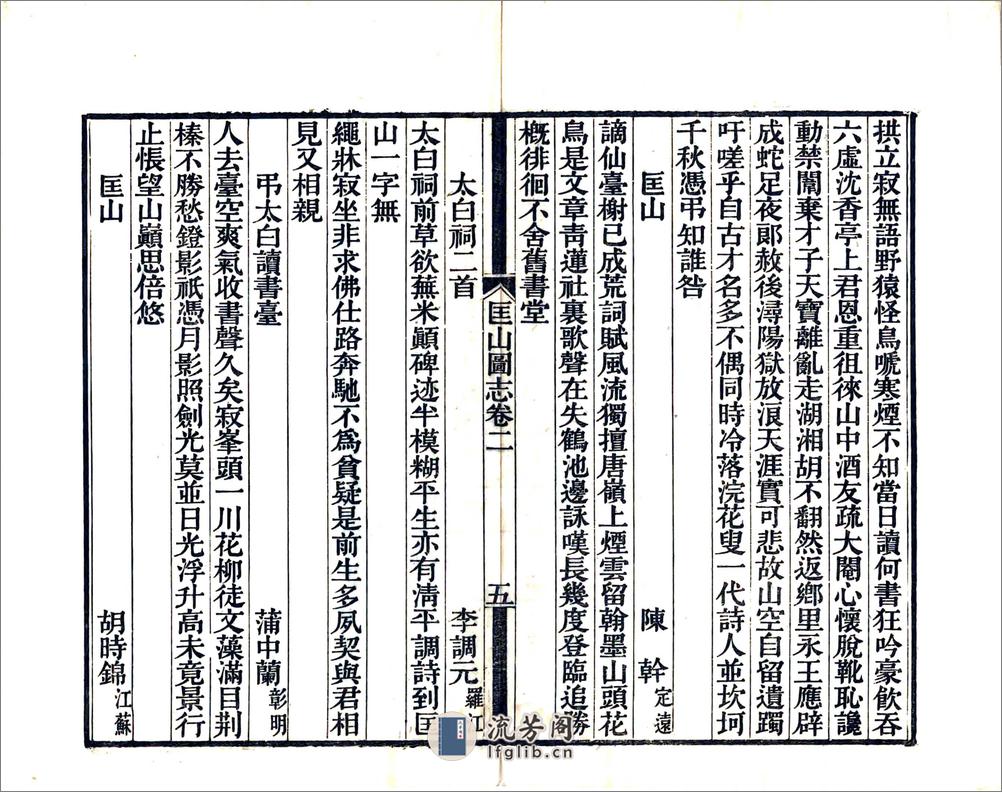 拱立寂無語野猿怪鳥嗁寒煙不知當日讀何書狂吟豪飮吞
六虛沈香亭上君恩重徂徠山中酒友疏大閹心懷脫靴恥讒
動禁闈棄才子天寶離亂走湖湘胡不翻然返鄉里永王應辟
成蛇足夜郞赦後潯陽獄放浪天涯實可悲故山空自留遺躅
吁嗟乎自古才名多不偶同時冷落浣花叟一代詩人並坎坷
千秋憑弔知誰咎
匡山 陳幹定遠
謫仙臺榭已成荒詞賦風流獨擅唐嶺上煙雲留翰墨山頭花
鳥是文章靑蓮社裏歌聲在失鶴池邊詠嘆長幾度登臨追勝
槪徘徊不舍舊書堂
匡山圖志卷二 五
太白祠二首 李調元羅江
太白祠前草欲蕪米顚碑迹半模糊平生亦有淸平調詩到匡
山一字無
繩牀寂坐非求佛仕路奔馳不爲貧疑是前生多夙契與君相
見又相親
弔太白讀書臺 蒲中蘭彰明
人去臺空爽氣收書聲久矣寂峯頭一川花柳徒文藻滿目荆
榛不勝愁鐙影祇憑月影照劍光莫並日光浮升高未竟景行
止悵望山巔思倍悠
匡山 胡時錦江蘇
流芳阁
lfglib.cn